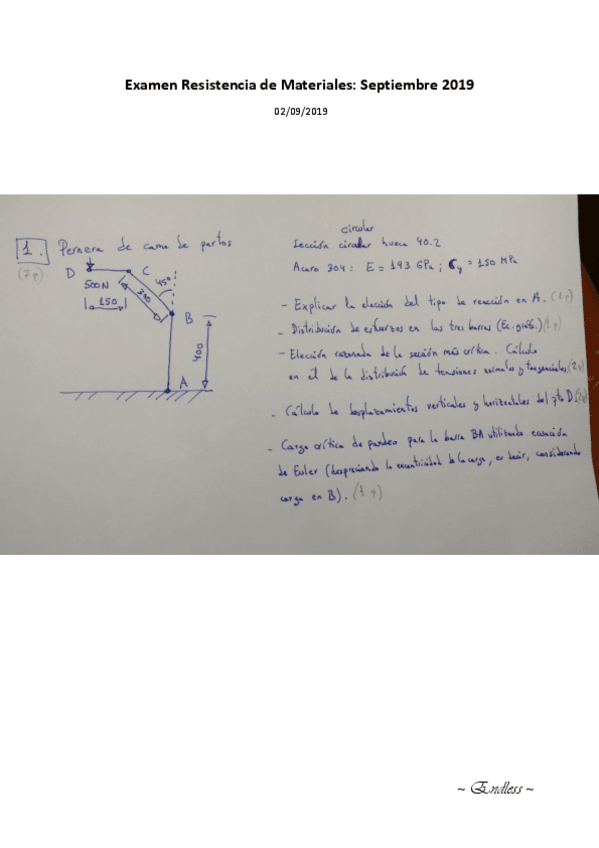 Examen Resistencia de Materiales: Septiembre 2019
02/09/2019
1. Pernera de cama de partos
(7p)
D
C
500N
150
300
45°
B
400
A
circular
Sección circular hueca 40.2
Acero 304: E = 193 GPa; σy = 150 MPa
- Explicar la elección del tipo de reacción en A. (1p)
- Distribución de esfuerzos en las tres barras (Ec. y gráf.) (1p)
- Elección razonada de la sección más crítica. Cálculo
en él de la distribución de tensiones normales y tangenciales (2p)
- Cálculo de desplazamientos verticales y horizontales del pto D. (2p)
- Carga crítica de pandeo para la barra BA utilizando ecuación
de Euler (despreciando la excentricidad de la carga, es decir, considerando
carga en B). (1p)
~ Endless ~